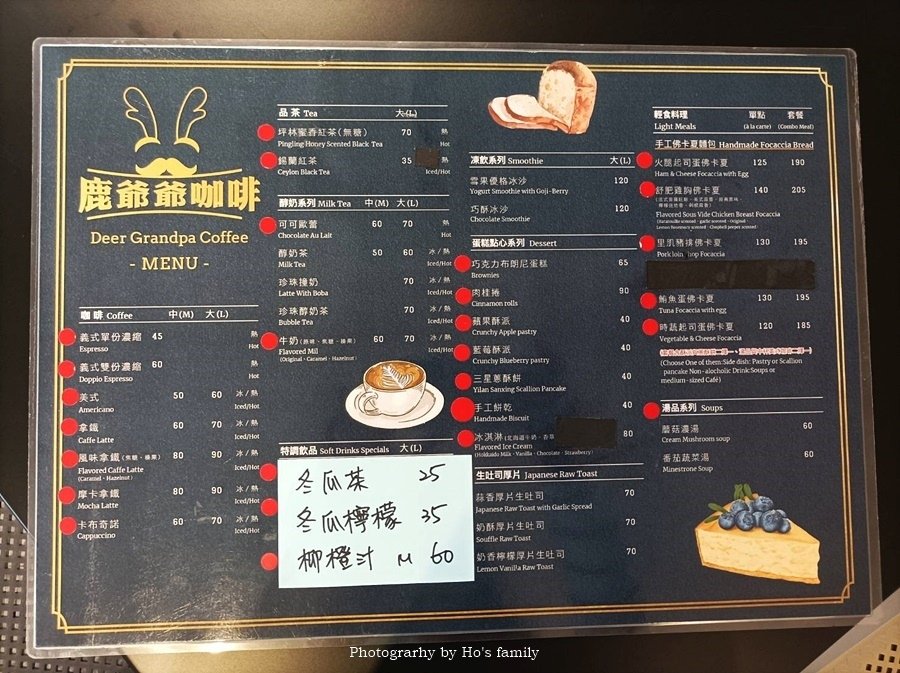 鹿爺爺咖啡
Deer Grandpa Coffee
- MENU -
咖啡 Coffee 中(M) 大(L)
義式單份濃縮 45 熱
Espresso Hot
義式雙份濃縮 60 熱
Doppio Espresso Hot
美式 50 60 冰/熱
Americano Iced/Hot
拿鐵 60 70 冰/熱
Caffe Latte Iced/Hot
風味拿鐵(焦糖、榛果) 80 90 冰/熱
Flavored Caffe Latte Iced/Hot
(Caramel、Hazelnut)
摩卡拿鐵 80 90 冰/熱
Mocha Latte Iced/Hot
卡布奇諾 60 70 冰/熱
Cappuccino Iced/Hot
品茶 Tea 大(L)
坪林蜜香紅茶(無糖) 70 熱
Pingling Honey Scented Black Tea Hot
錫蘭紅茶 35 熱
Ceylon Black Tea Iced/Hot
醇奶系列 Milk Tea 中(M) 大(L)
可可歐蕾 60 70 熱
Chocolate Au Lait Hot
醇奶茶 50 60 冰/熱
Milk Tea Iced/Hot
珍珠撞奶 70 冰/熱
Latte With Boba Iced/Hot
珍珠醇奶茶 70 冰/熱
Bubble Tea Iced/Hot
牛奶(原味、焦糖、榛果) 60 70 冰/熱
Flavored Mil Iced/Hot
(Original、Caramel、Hazelnut)
特調飲品 Soft Drinks Specials 大(L)
冬瓜茶 25
冬瓜檸檬 35
柳橙汁 M 60
凍飲系列 Smoothie 大(L)
雪果優格冰沙 120
Yogurt Smoothie with Goji-Berry
巧酥冰沙 120
Chocolate Smoothie
蛋糕點心系列 Dessert
巧克力布朗尼蛋糕 65
Brownies
肉桂捲 90
Cinnamon rolls
蘋果酥派 40
Crunchy Apple pastry
藍莓酥派 40
Crunchy Blueberry pastry
三星蔥酥餅 40
Yilan Sanxing Scallion Pancake
手工餅乾 40
Handmade Biscuit
冰淇淋(北海道牛奶、香草 80
Flavored Ice Cream
(Hokkaido Milk、Vanilla、Chocolate、Strawberry)
生吐司厚片 Japanese Raw Toast
蒜香厚片生吐司 70
Japanese Raw Toast with Garlic Spread
奶酥厚片生吐司 70
Souffle Raw Toast
奶香檸檬厚片生吐司 70
Lemon Vanilla Raw Toast
輕食料理 單點 套餐
Light Meals (à la carte) (Combo Meal)
手工佛卡夏麵包 Handmade Focaccia Bread
火腿起司蛋佛卡夏 125 190
Ham & Cheese Focaccia with Egg
舒肥雞胸佛卡夏 140 205
Flavored Sous Vide Chicken Breast Focaccia
里肌豬排佛卡夏 130 195
Pork loin chop Focaccia
鮪魚蛋佛卡夏 130 195
Tuna Focaccia with egg
時蔬起司蛋佛卡夏 120 185
Vegetable & Cheese Focaccia
(Choose One of them:Side dish: Pastry or Scallion
pancake Non-alocholic Drink:Soups or
medium-sized Café)
湯品系列 Soups
蘑菇濃湯 60
Cream Mushroom soup
番茄蔬菜湯 60
Minestrone Soup
Photograrhy by Ho's family